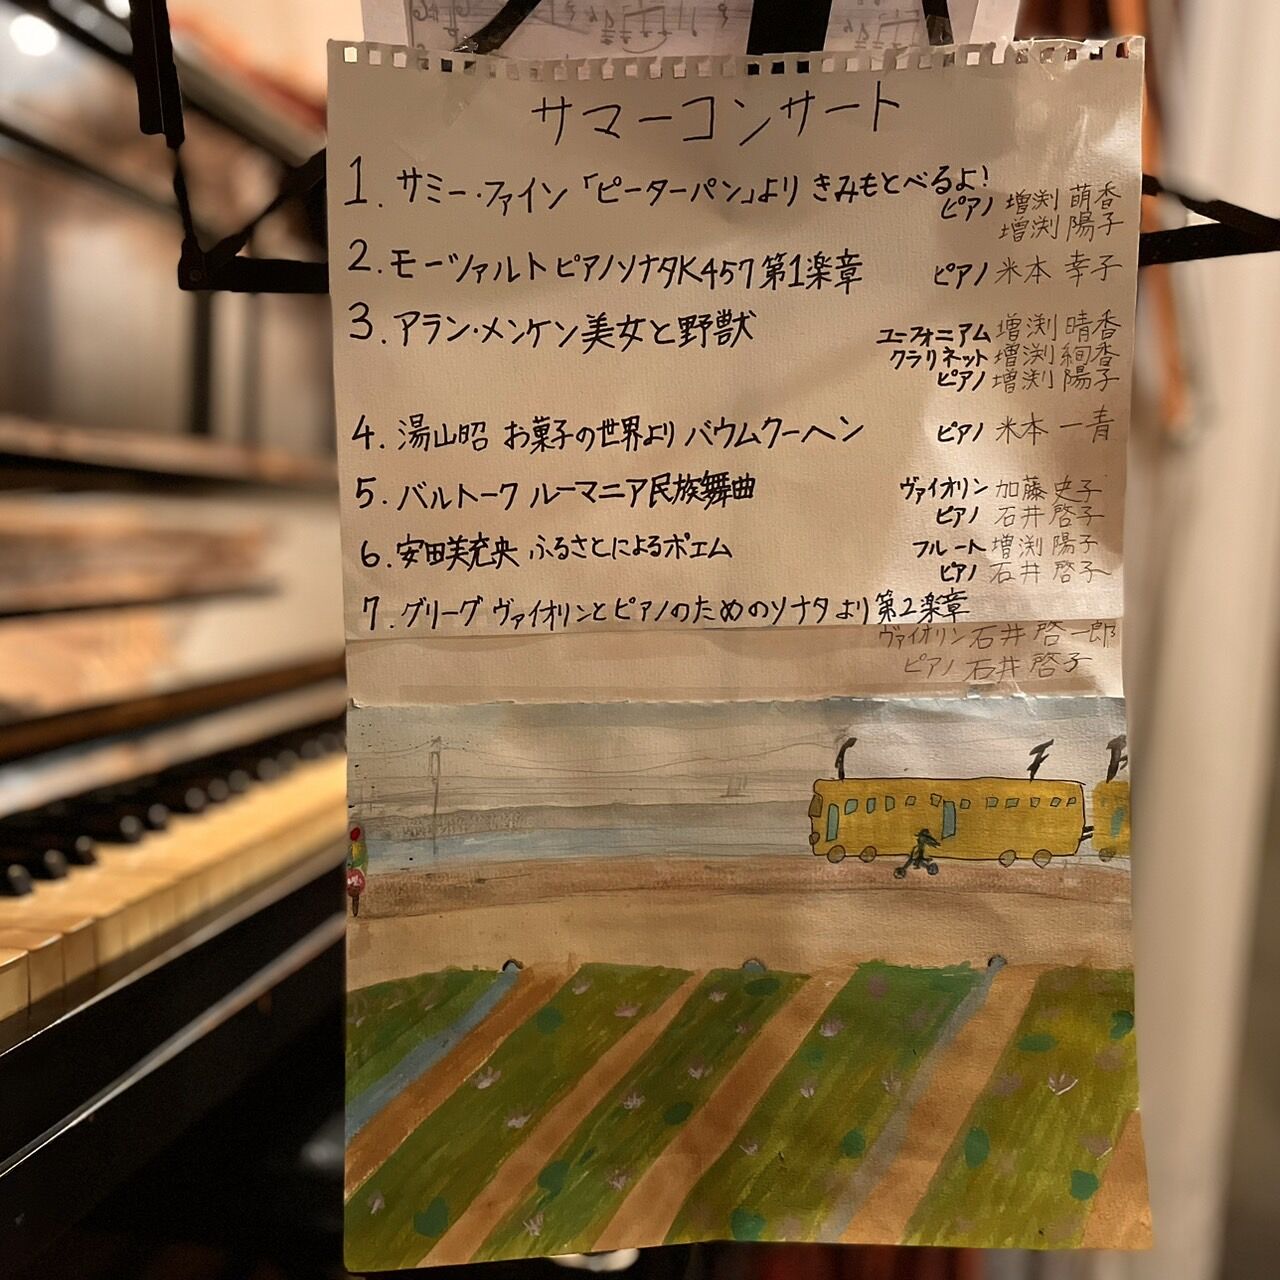 サマーコンサート
1. サミー・ファイン「ピーターパン」より きみもとべるよ!
ピアノ 増渕 萌香
増渕 陽子
2. モーツァルト ピアノソナタK457 第1楽章 ピアノ 米本 幸子
3. アラン・メンケン 美女と野獣
ユーフォニアム 増渕 晴香
クラリネット 増渕 絢香
ピアノ 増渕 陽子
4. 湯山昭 お菓子の世界より バウムクーヘン ピアノ 米本 一青
5. バルトーク ルーマニア民族舞曲 ヴァイオリン 加藤 史子
ピアノ 石井 啓子
6. 安田芙充央 ふるさとによるポエム フルート 増渕 陽子
ピアノ 石井 啓子
7. グリーグ ヴァイオリンとピアノのためのソナタより 第2楽章
ヴァイオリン 石井 啓一郎
ピアノ 石井 啓子